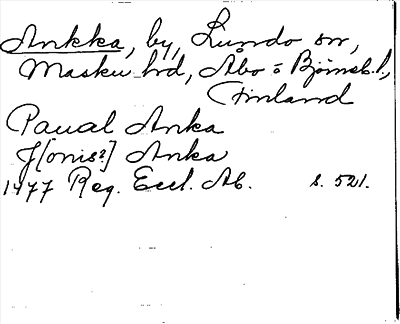 Ankka, by, Lundo sn,
Masku hd, Åbo o Björneb. l.,
Finland
Paual Anka
J[onis?] Anka
1477 Reg. Eccl. Ab. s. 521.